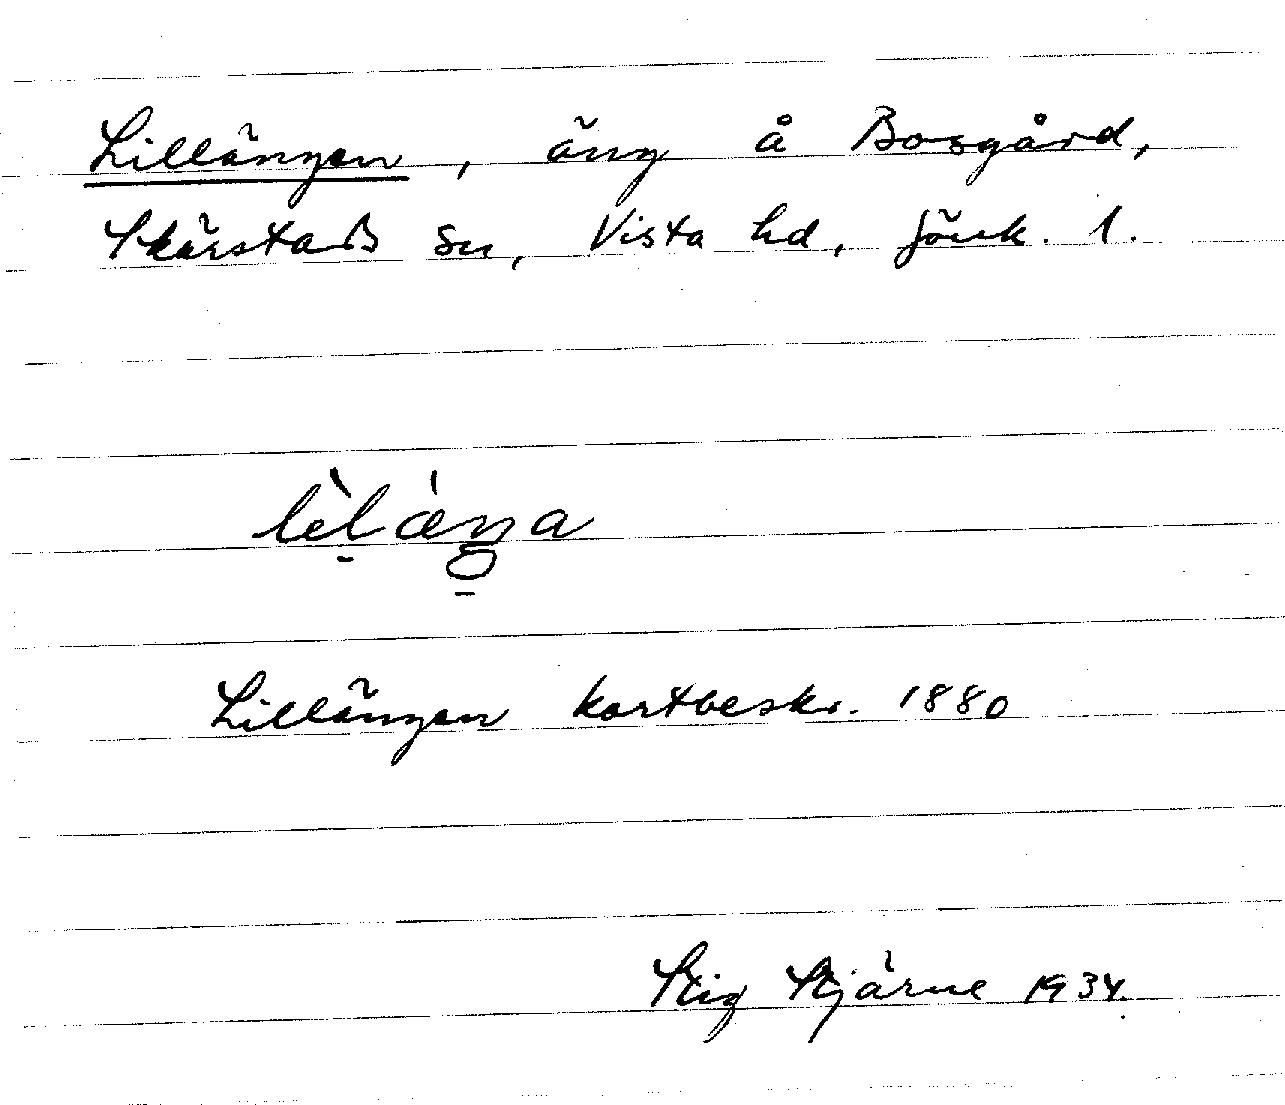 Lillängen, äng å Bosgård,
Skärstads sn, Vista hd, Jönk. l.
lìlǽŋa
Lillängen kartbeskr. 1880
Stig Stjärne 1934.